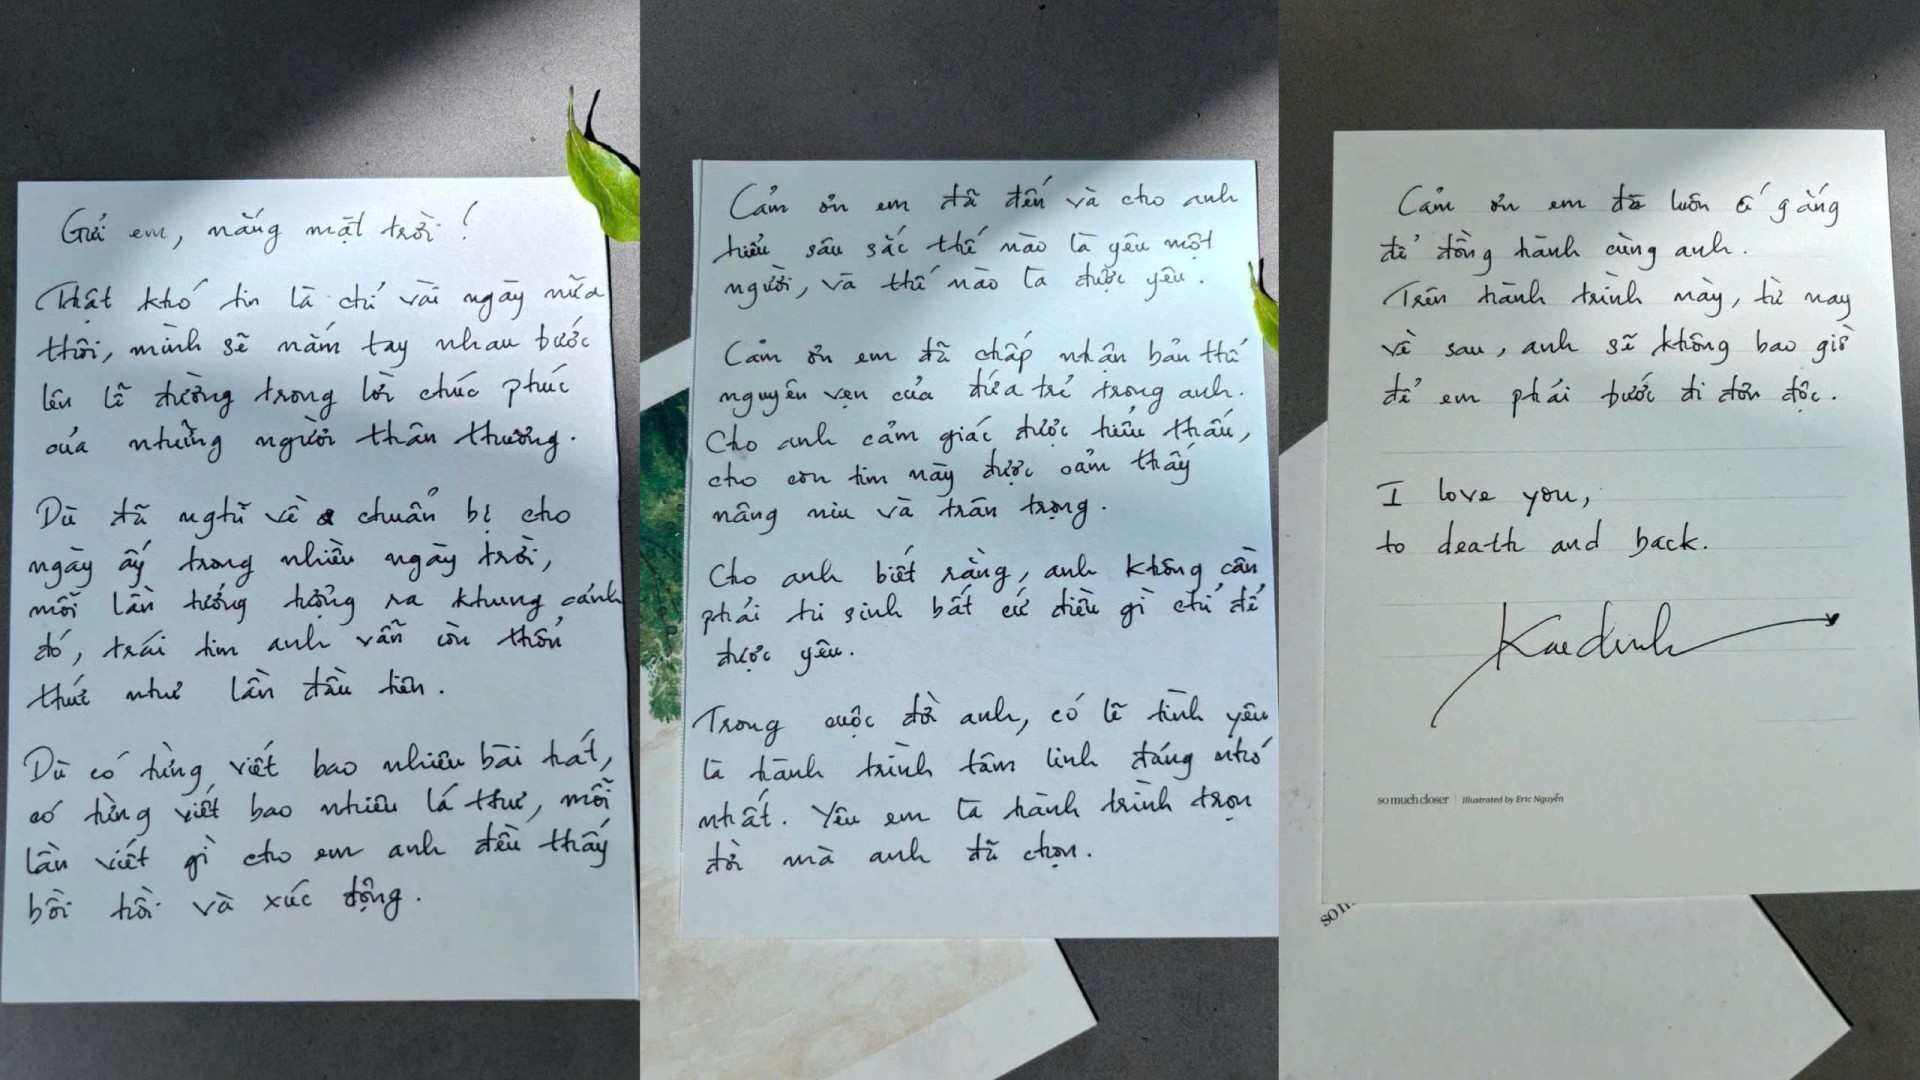 Gửi em, nắng mặt trời!
Thật khó tin là chỉ vài ngày nữa
thôi, mình sẽ nắm tay nhau bước
lên lễ đường trong lời chúc phúc
của những người thân thương.
Dù đã nghĩ về & chuẩn bị cho
ngày ấy trong nhiều ngày trời,
mỗi lần tưởng tượng ra khung cảnh
đó, trái tim anh vẫn còn thổn
thức như lần đầu tiên.
Dù có từng viết bao nhiêu bài hát,
có từng viết bao nhiêu lá thư, mỗi
lần viết gì cho em anh đều thấy
bồi hồi và xúc động.
Cảm ơn em đã đến và cho anh
hiểu sâu sắc thế nào là yêu một
người, và thế nào là được yêu.
Cảm ơn em đã chấp nhận bản thể
nguyên vẹn của đứa trẻ trong anh.
Cho anh cảm giác được hiểu thấu,
cho con tim này được cảm thấy
nâng niu và trân trọng.
Cho anh biết rằng, anh không cần
phải hi sinh bất cứ điều gì chỉ để
được yêu.
Trong cuộc đời anh, có lẽ tình yêu
là hành trình tâm linh đáng nhớ
nhất. Yêu em là hành trình trọn
đời mà anh đã chọn.
Cảm ơn em đã luôn cố gắng
để đồng hành cùng anh.
Trên hành trình này, từ nay
về sau, anh sẽ không bao giờ
để em phải bước đi đơn độc.
I love you,
to death and back.
Kaedinh
so much closer | Illustrated by Eric Nguyễn